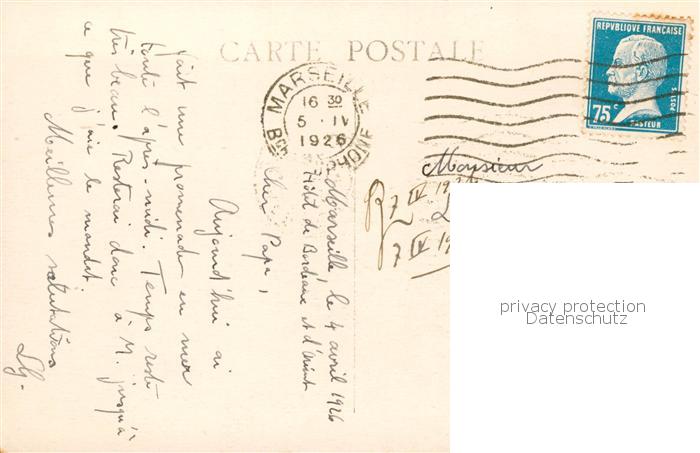 CARTE POSTALE
MARSEILLE
16 30
5 · IV
1926
RHONE
REPUBLIQUE FRANÇAISE
POSTES
75c
PASTEUR
Marseille, le 4 avril 1926
Hôtel de Bordeaux et d'Orient
Cher Papa,
Aujourd'hui ai
fait une promenade en mer
toute l'après-midi. Temps reste
très beau. Resterai donc à M. jusqu'à
ce que j'aie le mandat.
Meilleures salutations
Monsieur
7 IV
7 IV
privacy protection
Datenschutz